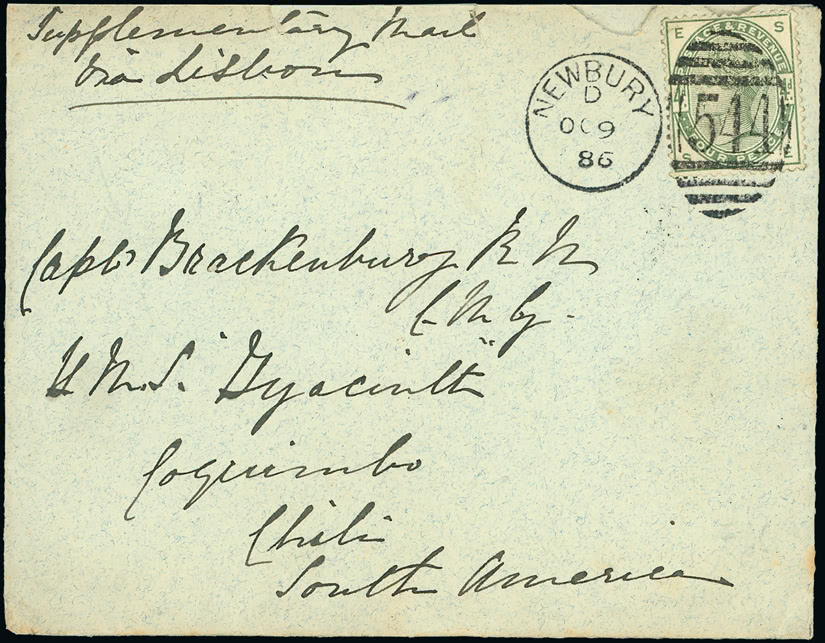 Supplementary Mail
Via Lisbon
NEWBURY
D
OC 9
86
E S
POSTAGE & REVENUE
544
FOUR PENCE
S E
Capt. Brackenbury R N
C. M. G.
H. M. S. "Hyacinth"
Coquimbo
Chili
South America